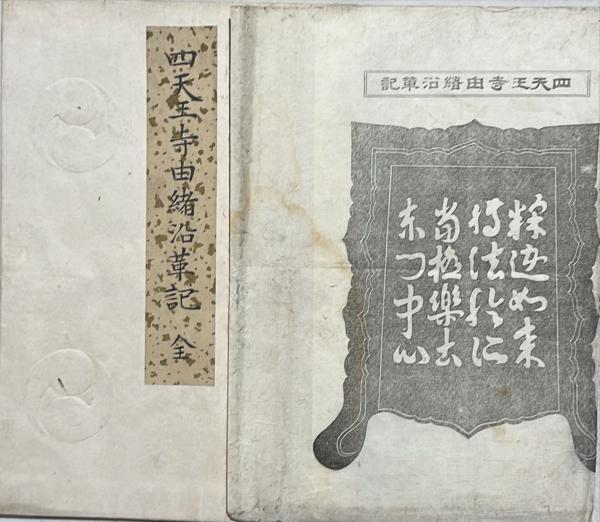 四天王寺由緒沿革記
釋迦如来
轉法輪処
當極樂土
東門中心
四天王寺由緒沿革記 全